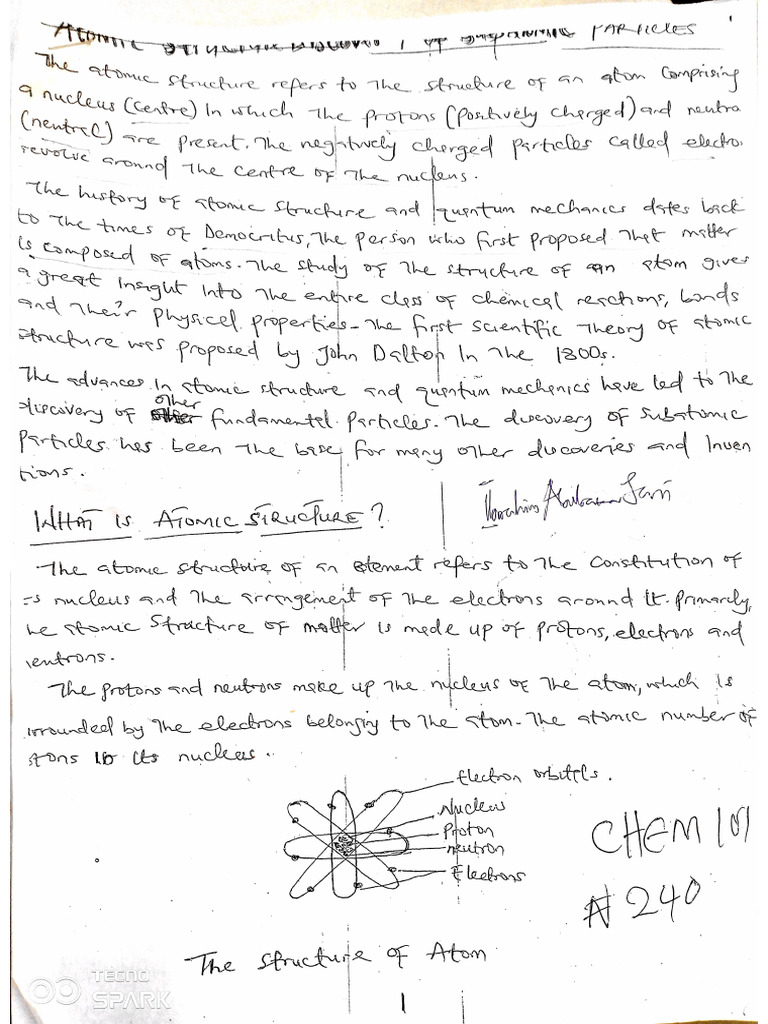 PARTICLES
The atomic structure refers to the structure of an atom comprising
a nucleus (centre) in which the protons (positively charged) and neutro
(neutral) are present. The negatively charged particles called electro
revolve around the centre of the nucleus.
The history of atomic structure and quantum mechanics dates back
to the times of Democritus, the person who first proposed that matter
is composed of atoms. The study of the structure of an atom gives
a great insight into the entire class of chemical reactions, bonds
and their physical properties. The first scientific theory of atomic
structure was proposed by John Dalton in the 1800s.
The advances in atomic structure and quantum mechanics have led to the
other
discovery of fundamental particles. The discovery of subatomic
particles has been the base for many other discoveries and inven
tions.
WHAT IS ATOMIC STRUCTURE?
The atomic structure of an element refers to the constitution of
ts nucleus and the arrangement of the electrons around it. Primarily,
he atomic structure of matter is made up of protons, electrons and
eutrons.
The protons and neutrons make up the nucleus of the atom, which is
urrounded by the electrons belonging to the atom. The atomic number of
tons in its nucleus.
Electron orbitals.
Nucleus
Proton
neutron
Electrons
CHEM 101
₦240
The Structure of Atom
1
TECNO
SPARK